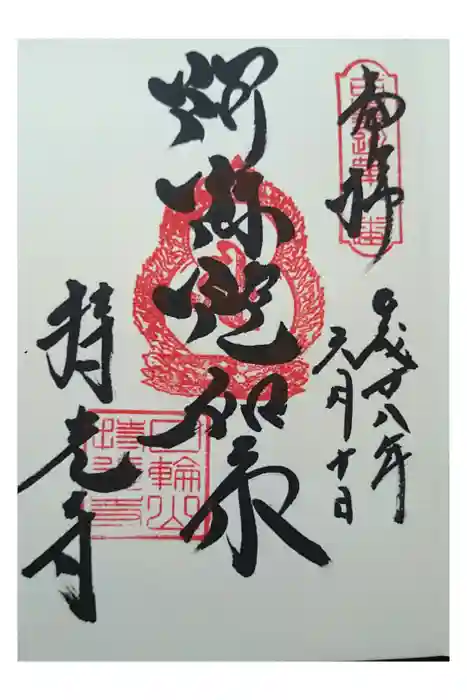 奉拝
平成廿八年
六月十日
阿弥陀如来
持光寺
日輪山
持光寺